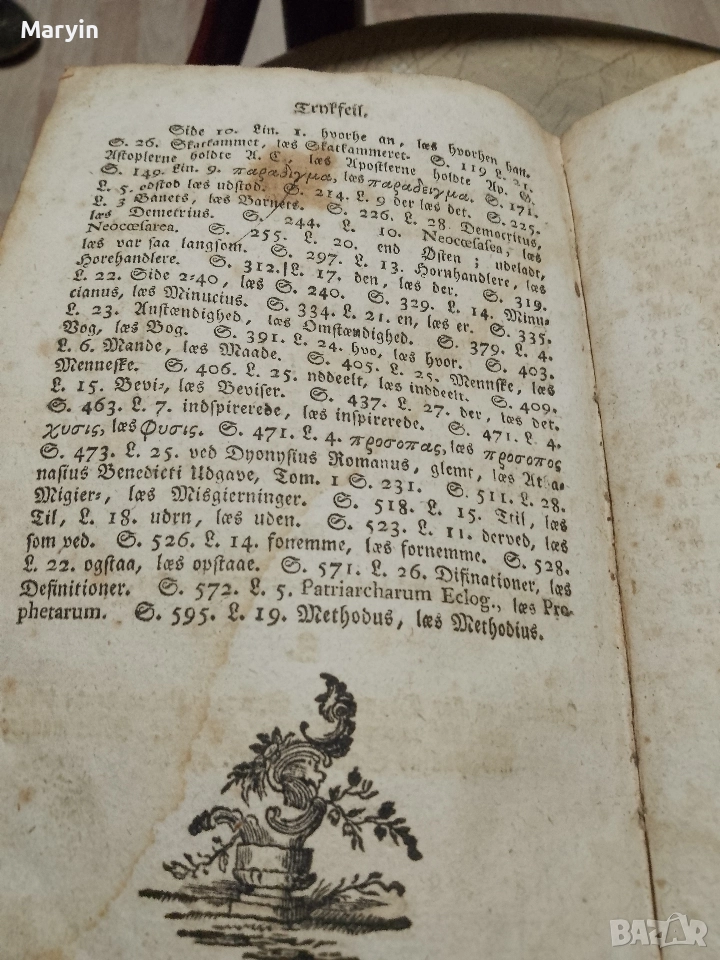 Maryin
Trykfeil.
Side 10. Lin. 1. hvorhe an, læs hvorhen han.
S. 26. Skatkammet, læs Skatkammeret. S. 119 L. 21.
Astoplerne holdte A. C, læs Apostlerne holdte Ap. C.
S. 149. Lin. 9. παραδιγμα, læs παραδειγμα. S. 171.
L. 5. odstod læs udstod. S. 214. L. 9 der læs det. S. 225.
L. 3 Banets, læs Barnets. S. 226. L. 28. Democritus,
læs Demetrius. S. 244. L. 10. Neocœsasea, læs
Neocœsarea. S. 255. L. 20. end Østen; udeladt,
læs var saa langsom. S. 297. L. 13. Hornhandlere, læs
Horehandlere. S. 312. L. 17. den, læs der. S. 319.
L. 22. Side 2:40, læs S. 240. S. 329. L. 14. Minu-
cianus, læs Minucius. S. 334. L. 21. en, læs er. S. 335.
L. 23. Anstændighed, læs Omstændighed. S. 379. L. 4.
Vog, læs Bog. S. 391. L. 24. hvo, læs hvor. S. 403.
L. 6. Mande, læs Maade. S. 405. L. 25. Mennske, læs
Menneske. S. 406. L. 25. nddeelt, læs inddeelt. S. 409.
L. 15. Bevi-, læs Beviser. S. 437. L. 27. der, læs det.
S. 463. L. 7. indspirerede, læs inspirerede. S. 471. L. 4.
χυσις, læs Φυσις. S. 471. L. 4. προσοπας, læs προσοπος
S. 473. L. 25. ved Dyonysius Romanus, glemt, læs Atha-
nasius Benedicti Udgave, Tom. 1 S. 231. S. 511. L. 28.
Migier-, læs Misgierninger. S. 518. L. 15. Ttil, læs
Til, L. 18. udrn, læs uden. S. 523. L. 11. derved, læs
som ved. S. 526. L. 14. fonemme, læs fornemme. S. 528.
L. 22. ogstaa, læs opstaae. S. 571. L. 26. Difinationer, læs
Definitioner. S. 572. L. 5. Patriarcharum Eclog., læs Pro-
phetarum. S. 595. L. 19. Methodus, læs Methodius.
BAZAR